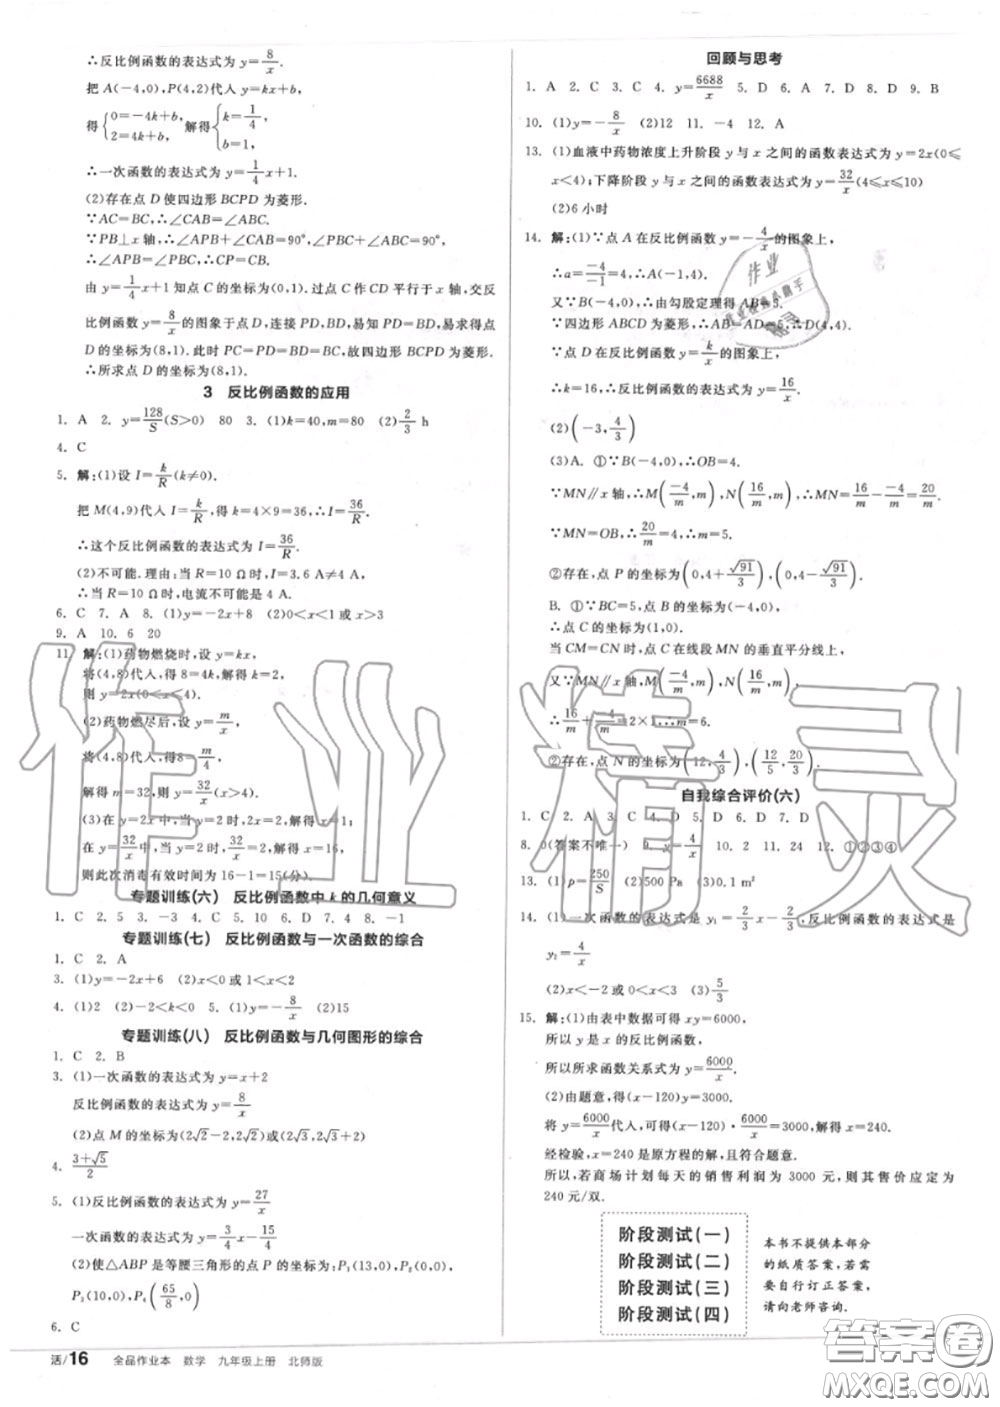 ∴反比例函数的表达式为 y=8/x.
把 A(-4,0),P(4,2)代入 y=kx+b,
得{0=-4k+b, 2=4k+b, 解得{k=1/4, b=1,
∴一次函数的表达式为 y=1/4x+1.
(2)存在点 D 使四边形 BCPD 为菱形.
∵AC=BC,∴∠CAB=∠ABC.
∵PB⊥x 轴,∴∠APB+∠CAB=90°,∠PBC+∠ABC=90°,
∴∠APB=∠PBC,∴CP=CB.
由 y=1/4x+1 知点 C(0,1).过点 C 作 CD 平行于 x 轴,交反
比例函数 y=8/x的图象于点 D,连接 PD,BD,易知 PD=BD,易求得点
D 的坐标为(8,1).此时 PC=PD=BD=BC,故四边形 BCPD 为菱形.
∴所求点 D 的坐标为(8,1).
3 反比例函数的应用
1. A 2. y=128/S(S>0) 80 3. (1)k=40,m=80 (2)2/3 h
4. C
5. 解:(1)设 I=k/R(k≠0).
把 M(4,9)代入 I=k/R,得 k=4×9=36,∴I=36/R.
∴这个反比例函数的表达式为 I=36/R.
(2)不可能.理由:当 R=10 Ω时,I=3.6 A≠4 A.
∴当 R=10 Ω时,电流不可能是 4 A.
6. C 7. A 8. (1)y=-2x+8 (2)0<x<1 或 x>3
9. A 10. 6 20
11. 解:(1)药物燃烧时,设 y=kx,
将(4,8)代入,得 8=4k,解得 k=2,
则 y=2x(0<x≤4).
(2)药物燃尽后,设 y=m/x,
将(4,8)代入,得 8=m/4,
解得 m=32,则 y=32/x(x>4).
(3)在 y=2x 中,当 y=2时,2x=2,解得 x=1;
在 y=32/x中,当 y=2时,32/x=2,解得 x=16,
则此次消毒有效时间为 16-1=15(分).
专题训练(六) 反比例函数中 k 的几何意义
1. C 2. 5 3. -3 4. C 5. 10 6. D 7. 4 8. -1
专题训练(七) 反比例函数与一次函数的综合
1. C 2. A
3. (1)y=-2x+6 (2)x<0 或 1<x<2
4. (1)2 (2)-2<k<0 5. (1)y=-8/x (2)15
专题训练(八) 反比例函数与几何图形的综合
1. C 2. B
3. (1)一次函数的表达式为 y=x+2
反比例函数的表达式为 y=8/x
(2)点 M 的坐标为(2√2-2,2√2)或(2√3,2√3+2)
4. (3+√5)/2
5. (1)反比例函数的表达式为 y=27/x
一次函数的表达式为 y=3/4x-15/4
(2)使△ABP 是等腰三角形的点 P 的坐标为:P₁(13,0),P₂(-5,0),
P₃(10,0),P₄(65/8,0)
6. C
活/16 全品作业本 数学 九年级上册 北师版
回顾与思考
1. A 2. C 3. C 4. y=6688/x 5. D 6. A 7. D 8. D 9. B
10. (1)y=-8/x (2)12 11. -4 12. A
13. (1)血液中药物浓度上升阶段 y 与 x 之间的函数表达式为 y=2x(0≤
x<4);下降阶段 y 与 x 之间的函数表达式为 y=32/x(4≤x≤10)
(2)6 小时
14. 解:(1)∵点 A 在反比例函数 y=-4/x的图象上,
∴a=-4/-4=1,∴A(-1,4).
又∵B(-4,0),∴由勾股定理得 AB=5.
∵四边形 ABCD 为菱形,∴AB=AD=5,∴D(4,4).
∵点 D 在反比例函数 y=k/x的图象上,
∴k=16,∴反比例函数的表达式为 y=16/x.
(2)(-3,4/3)
(3)A. ①∵B(-4,0),∴OB=4.
∵MN∥x 轴,∴M(-4/m,m),N(16/m,m),∴MN=16/m--4/m=20/m
∵MN=OB,∴20/m=4,∴m=5.
②存在,点 P 的坐标为(0,4+√91/3),(0,4-√91/3)
B. ①∵BC=5,点 B 的坐标为(-4,0),
∴点 C 的坐标为(1,0).
当 CM=CN时,点 C 在线段 MN 的垂直平分线上,
又∵MN∥x 轴,M(-4/m,m),N(16/m,m),
∴16/m+-4/m=2×1,∴m=6.
②存在,点 N 的坐标为(12,4/3),(12/5,20/3)
自我综合评价(六)
1. C 2. A 3. C 4. D 5. D 6. D 7. D
8. 0(答案不唯一) 9. y=4/x 10. 2 11. 24 12. ①②③④
13. (1)p=250/S (2)500 Pa (3)0.1 m²
14. (1)一次函数的表达式是 y₁=2/3x-2/3,反比例函数的表达式是
y₂=4/x
(2)x<-2 或 0<x<3 (3)5/3
15. 解:(1)由表中数据可得 xy=6000,
所以 y 是 x 的反比例函数,
所以所求函数关系式为 y=6000/x.
(2)由题意,得(x-120)y=3000.
将 y=6000/x代入,可得(x-120)·6000/x=3000,解得 x=240.
经检验,x=240 是原方程的解,且符合题意.
所以,若商场计划每天的销售利润为 3000 元,则其售价应定为
240 元/双.
阶段测试(一)
阶段测试(二)
阶段测试(三)
阶段测试(四)
本书不提供本部分
的纸质答案,若需
要自行订正答案,
请向老师咨询.
作业精灵
答案圈
MXQE.COM